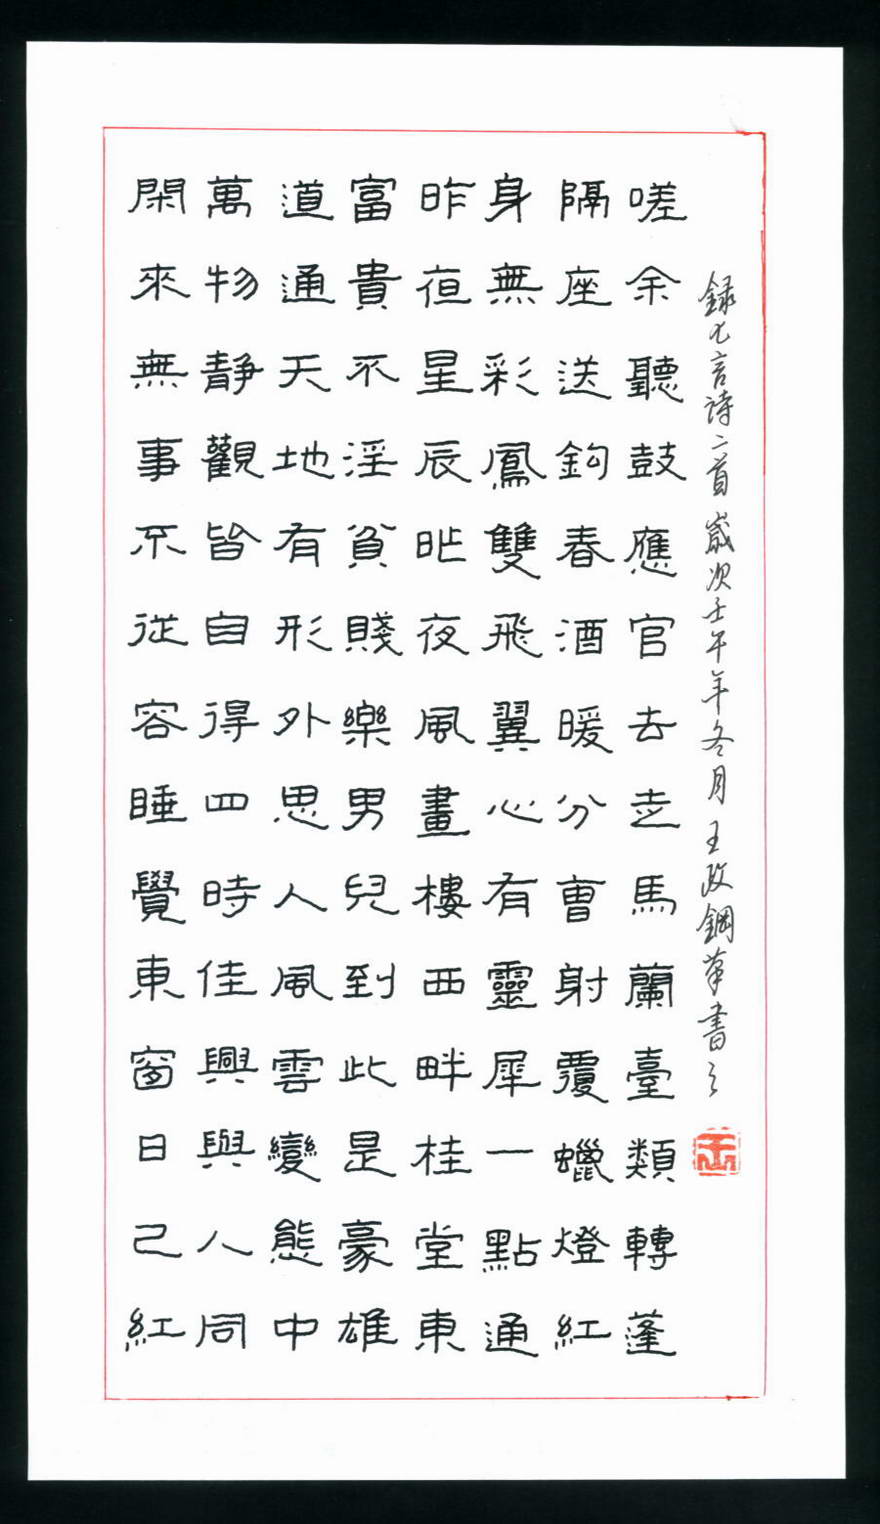 閑來無事不從容睡覺東窗日己紅
萬物靜觀皆自得四時佳興與人同
道通天地有形外思人風雲變態中
富貴不淫貧賤樂男兒到此是豪雄
昨夜星辰昨夜風畫樓西畔桂堂東
身無彩鳳雙飛翼心有靈犀一點通
隔座送鈎春酒暖分曹射覆蠟燈紅
嗟余聽鼓應官去走馬蘭臺類轉蓬
録七言詩二首 歲次壬午年冬月 王政鋼筆書之